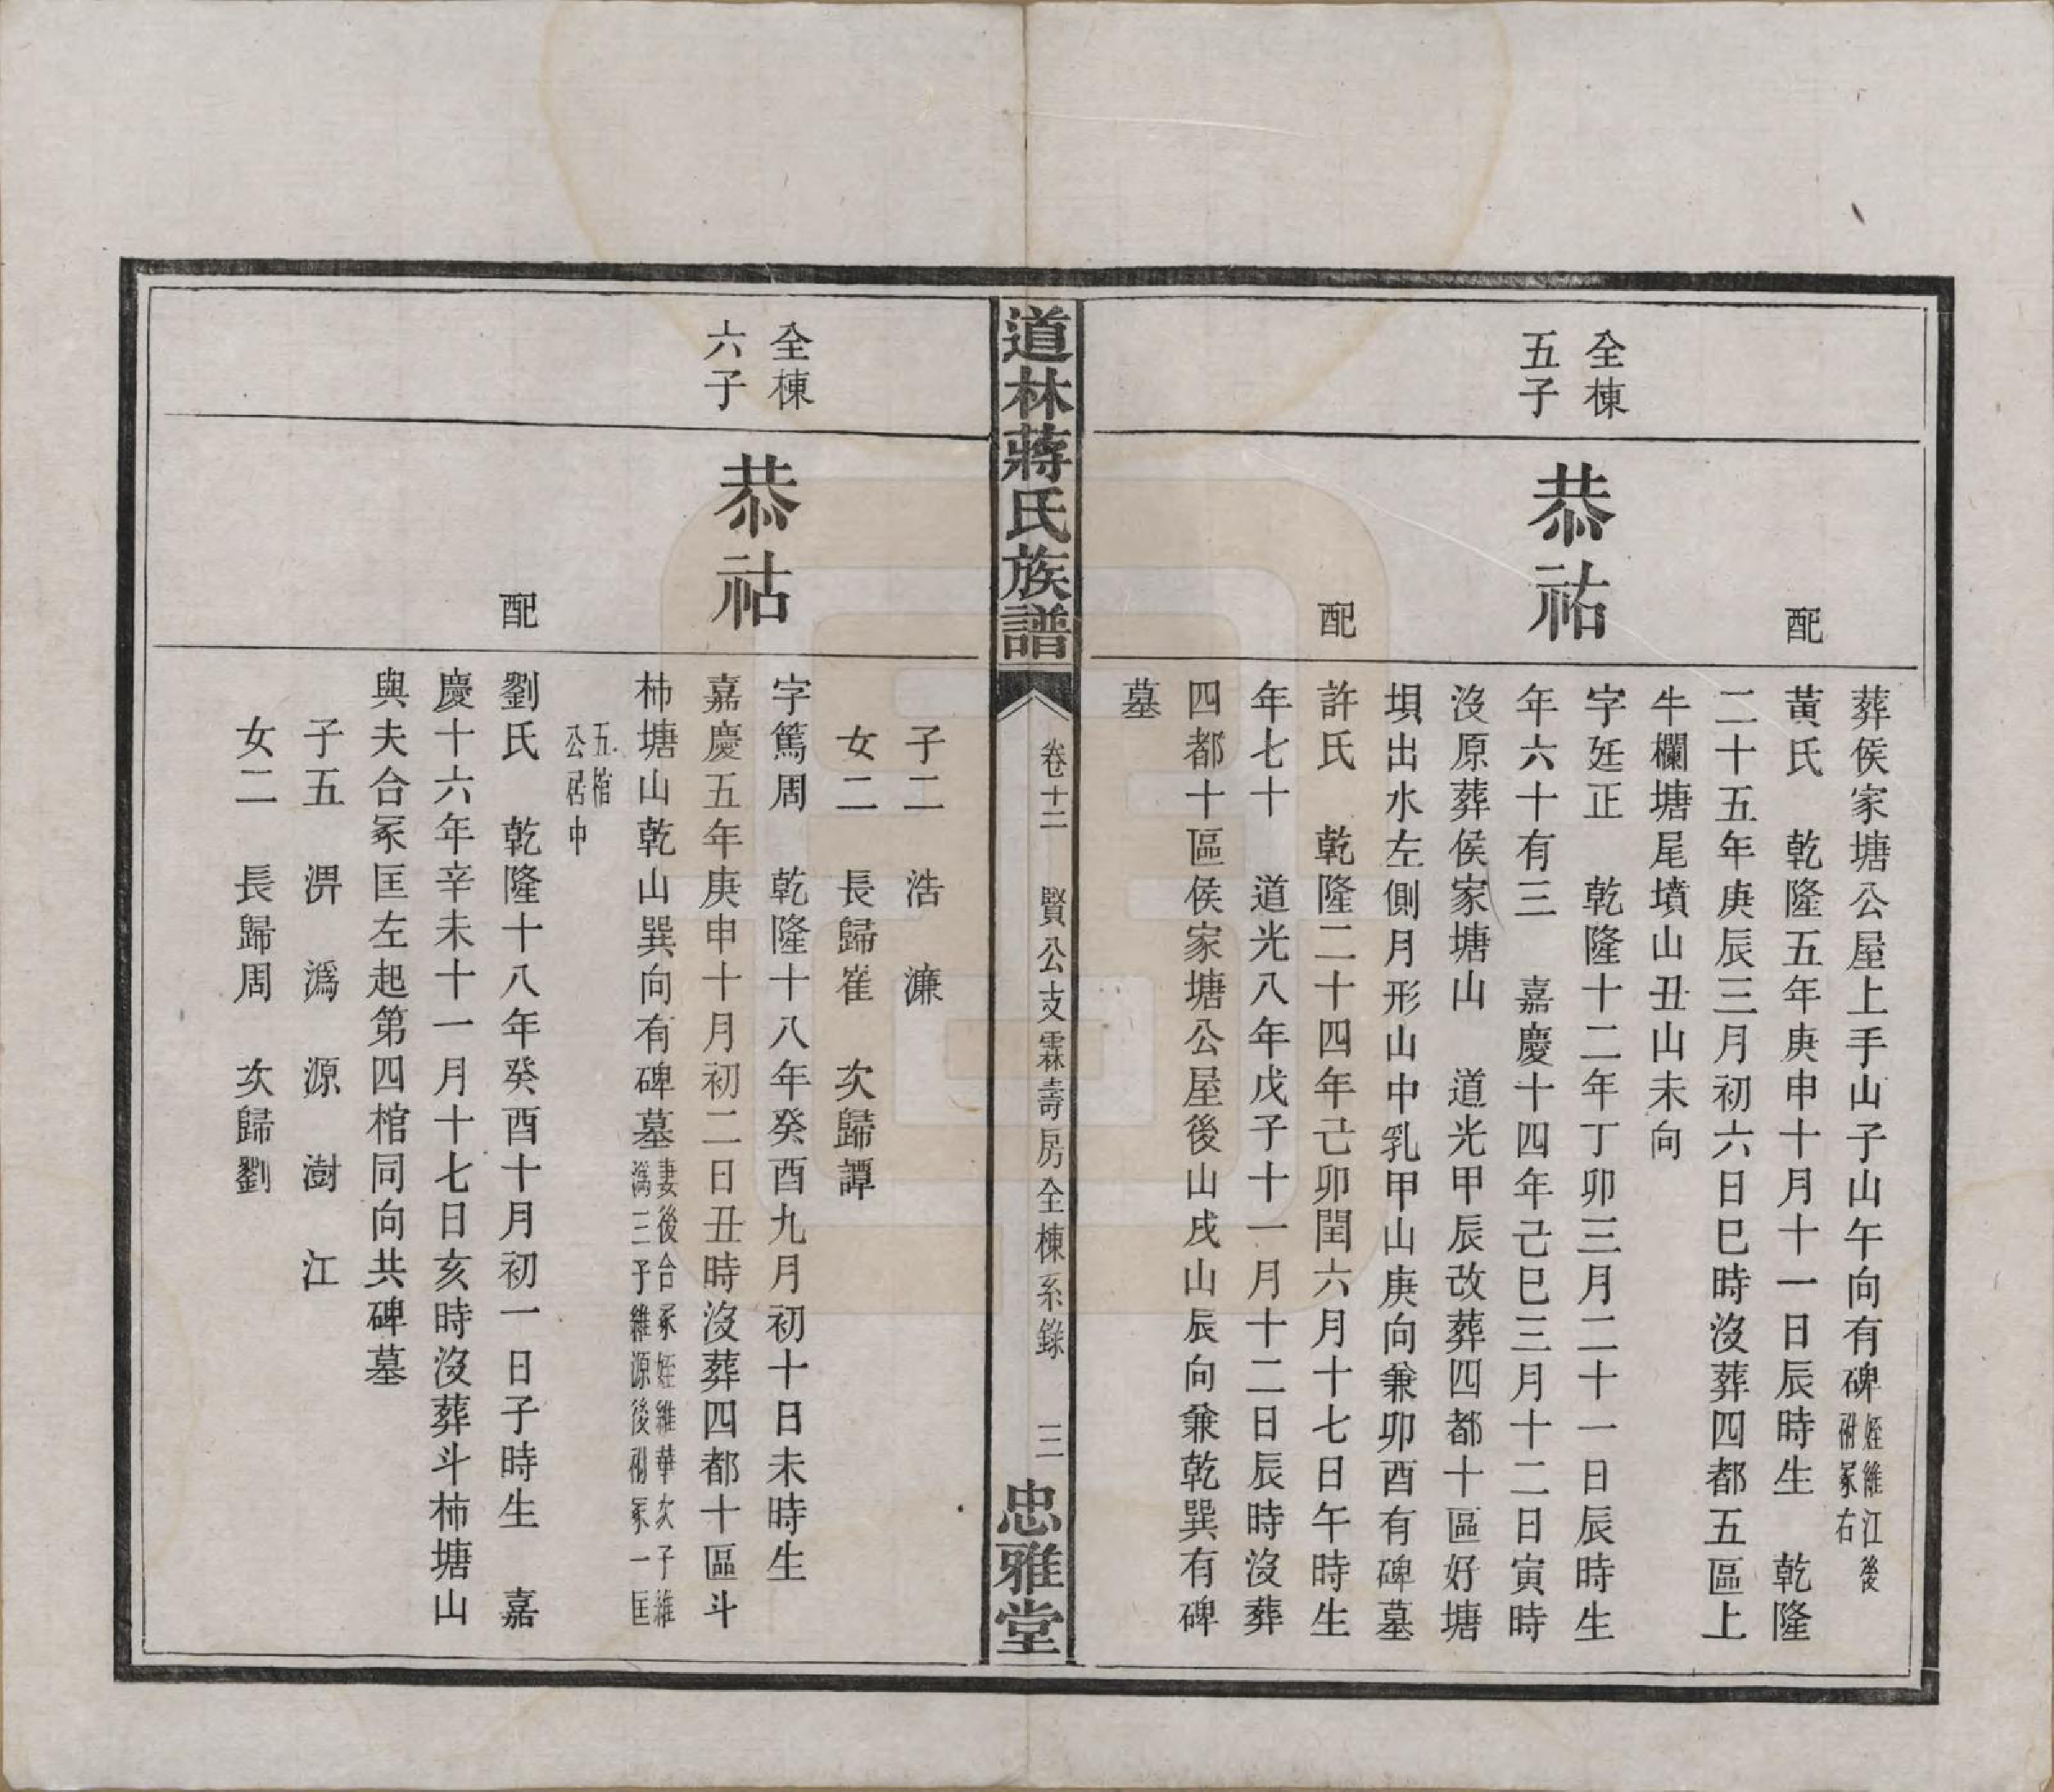 葬侯家塘公屋上手山子山午向有碑姪維江後祔冢右
配
黃氏　乾隆五年庚申十月十一日辰時生　乾隆
二十五年庚辰三月初六日巳時沒葬四都五區上
牛欄塘尾墳山丑山未向
全棟
五子
恭祐
字廷正　乾隆十二年丁卯三月二十一日辰時生
年六十有三　嘉慶十四年己巳三月十二日寅時
沒原葬侯家塘山　道光甲辰改葬四都十區好塘
垻出水左側月形山中乳甲山庚向兼卯酉有碑墓
配
許氏　乾隆二十四年己卯閏六月十七日午時生
年七十　道光八年戊子十一月十二日辰時沒葬
四都十區侯家塘公屋後山戌山辰向兼乾巽有碑
墓
道林蔣氏族譜
卷十二　賢公支霖壽房全棟系錄　三
忠雅堂
子二　浩　濂
女二　長歸崔　次歸譚
全棟
六子
恭祜
字篤周　乾隆十八年癸酉九月初十日未時生
嘉慶五年庚申十月初二日丑時沒葬四都十區斗
柿塘山乾山巽向有碑墓妻後合冢姪維華次子維溈三子維源後祔冢一匡
五棺公居中
配
劉氏　乾隆十八年癸酉十月初一日子時生　嘉
慶十六年辛未十一月十七日亥時沒葬斗柿塘山
與夫合冢匡左起第四棺同向共碑墓
子五　淠　溈　源　澍　江
女二　長歸周　次歸劉